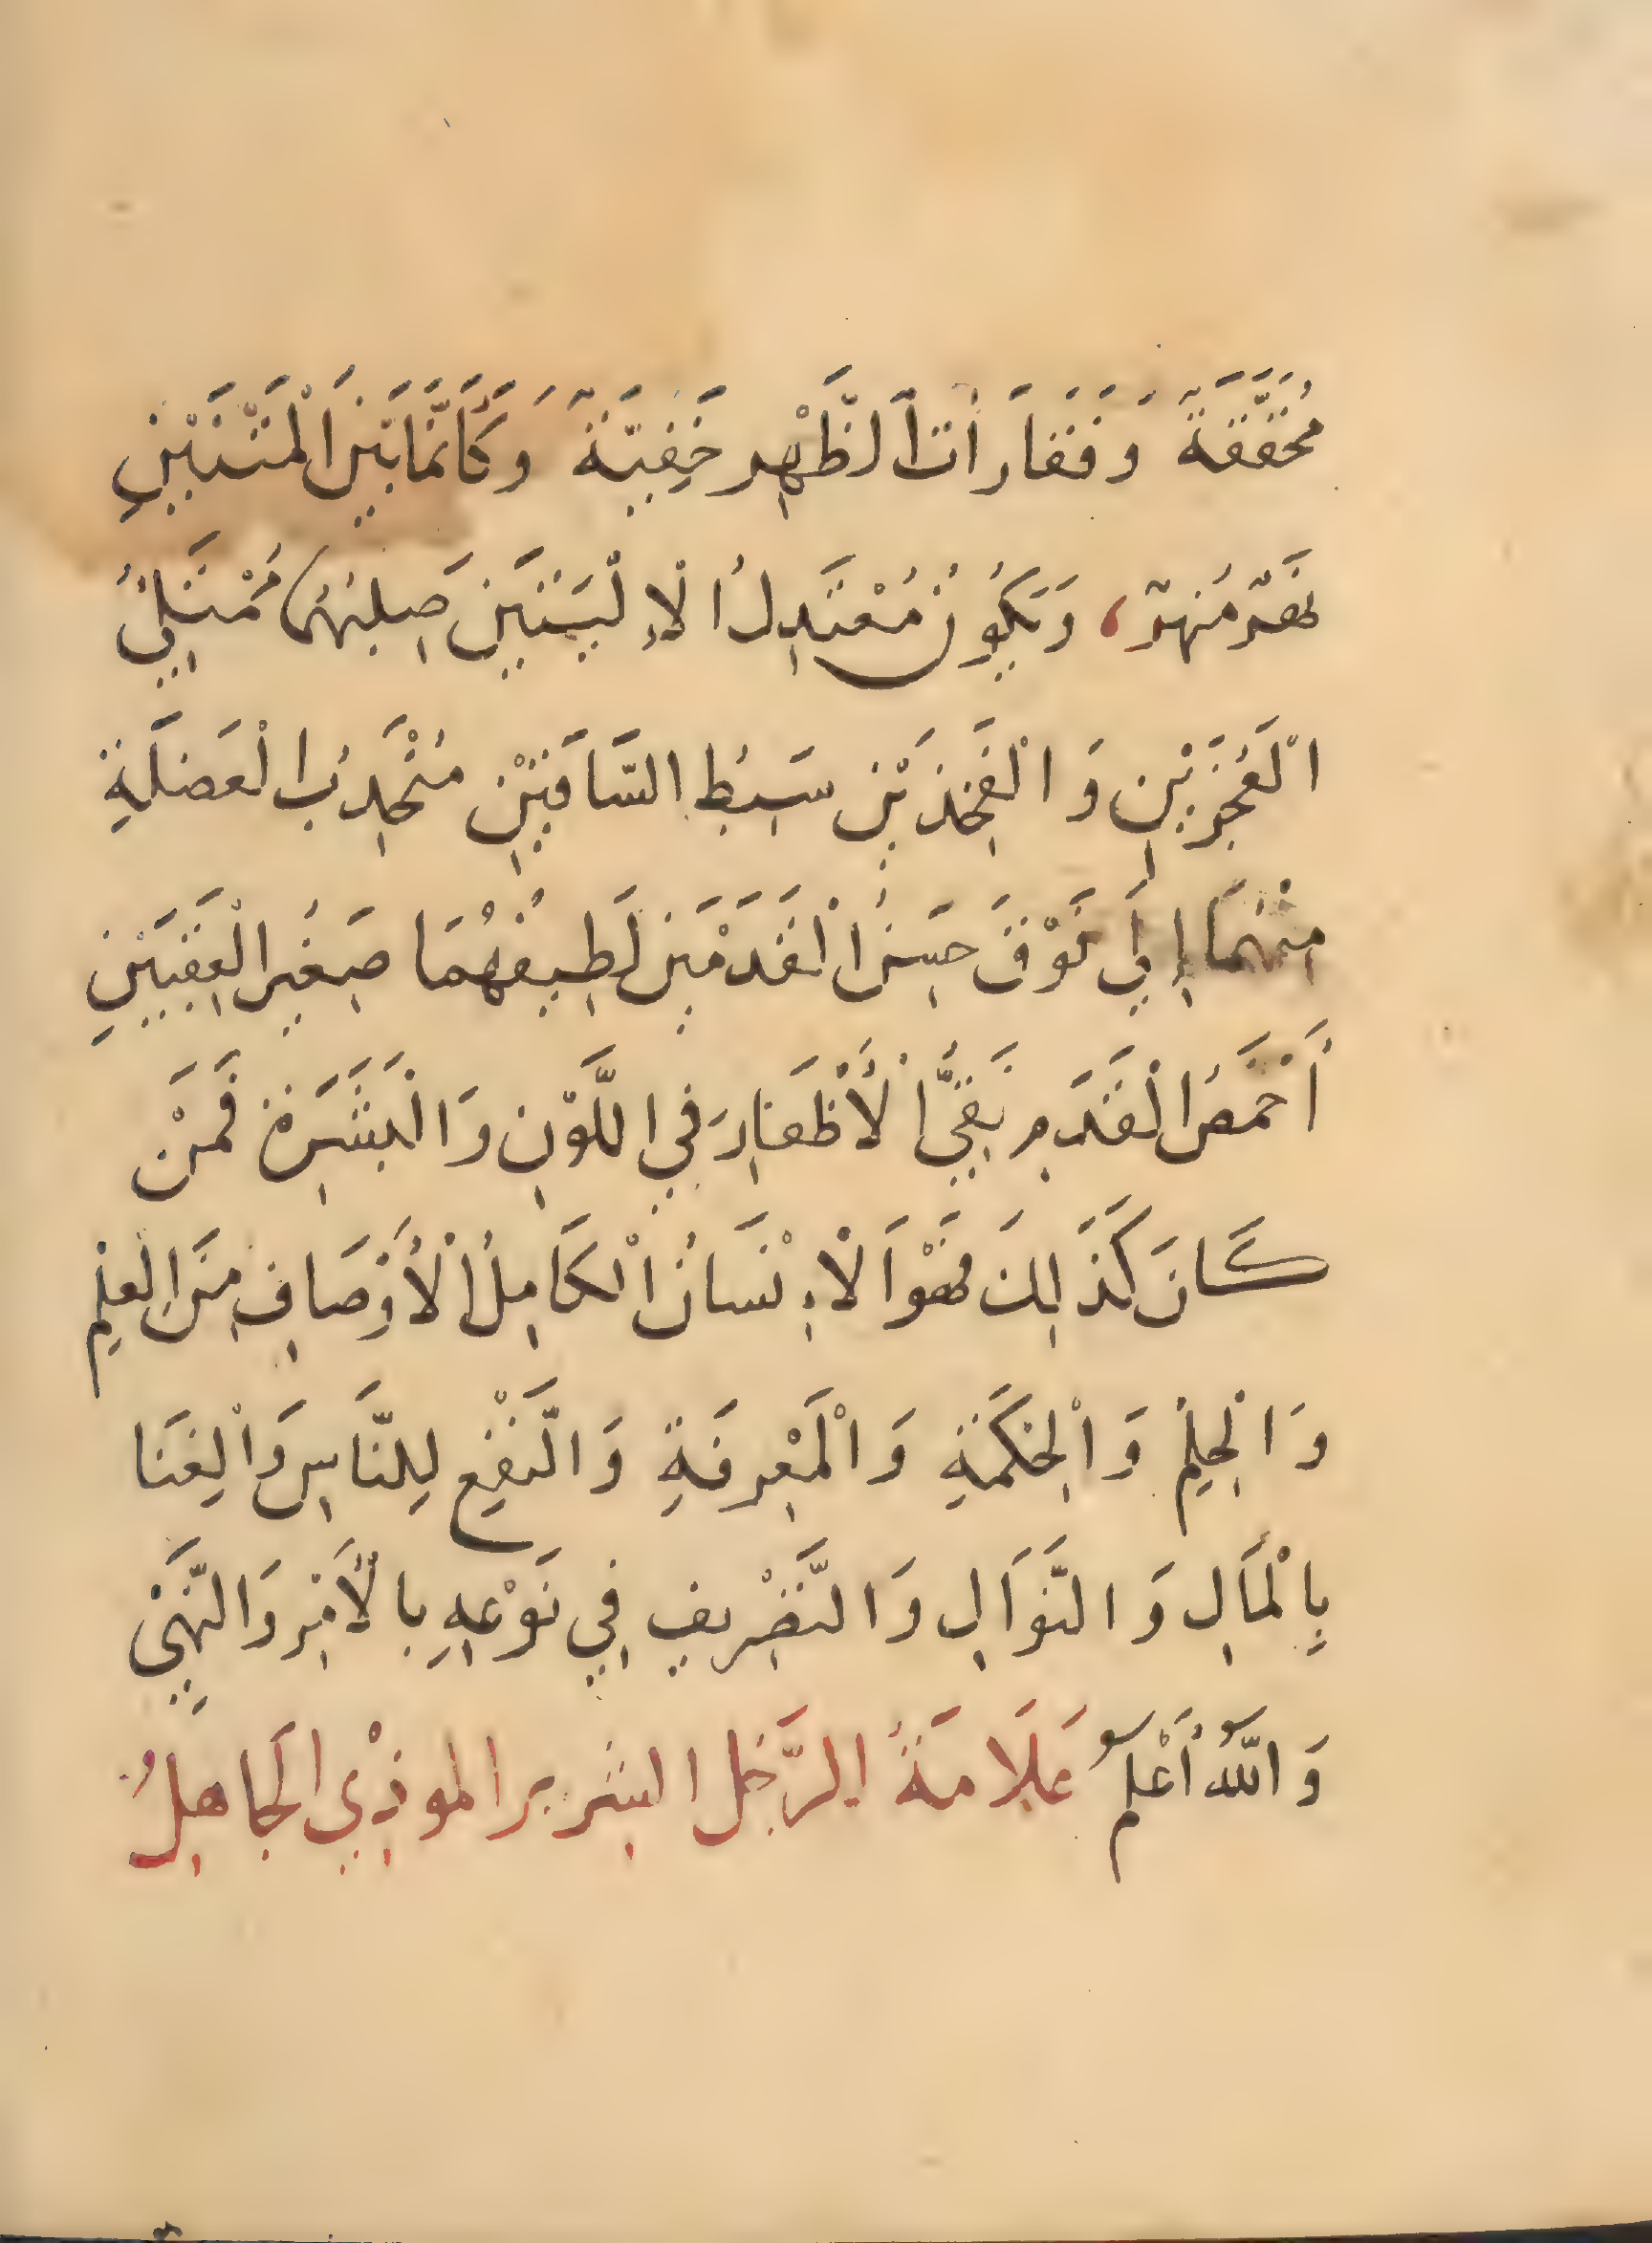 مُحَقَّقَةً وَفَقَارَاتُ الظَّهْرِ خَفِيَّةً وَكَأَنَّمَا بَيْنَ الْمَتْنَتَيْنِ
نَهَرٌ مُنهرٌ، وَيَكُونُ مُعْتَدِلُ الْإِلْيَتَيْنِ صَلِبُهُمَا مُمْتَلِئُ
الْعَجُزَيْنِ وَالْفَخِذَيْنِ سَبِطُ السَّاقَيْنِ مُنْحَدِبُ الْعَضَلَةِ
مِنْهُمَا إِلَى فَوْقَ حَسَنُ الْقَدَمَيْنِ لَطِيفُهُمَا صَغِيرُ الْعَقِبَيْنِ
أَخْمَصُ الْقَدَمِ نَقِيُّ الْأَظْفَارِ فِي اللَّوْنِ وَالْبَشَرَةِ فَمَنْ
كَانَ كَذَلِكَ فَهُوَ الْإِنْسَانُ الْكَامِلُ الْأَوْصَافِ مِنَ الْعِلْمِ
وَالْحِلْمِ وَالْحِكْمَةِ وَالْمَعْرِفَةِ وَالنَّفْعِ لِلنَّاسِ وَالْغِنَا
بِالْمَالِ وَالنَّوَالِ وَالتَّصْرِيفِ فِي نَوْعِهِ بِالْأَمْرِ وَالنَّهْيِ
وَاللَّهُ أَعْلَمُ عَلَامَةُ الرَّجُلِ الشرير الموذِي الْجَاهِلُ